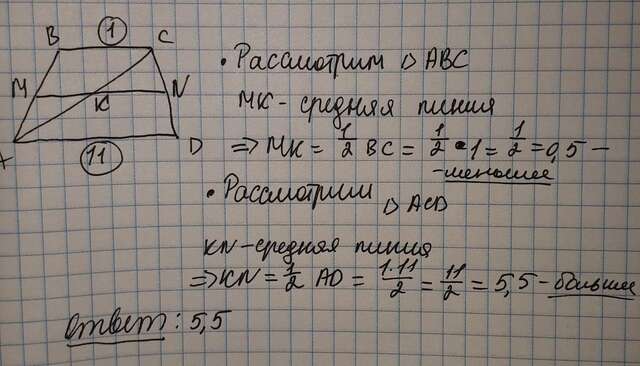 B 1 C
M K N
A 11 D
• Рассмотрим ▷ ABC
MK - средняя линия
⇒ MK = 1/2 BC = 1/2 • 1 = 1/2 = 0,5 -
- меньшее
• Рассмотрим ▷ ACD
KN - средняя линия
⇒ KN = 1/2 AD = 1·11/2 = 11/2 = 5,5 - большее
Ответ: 5,5